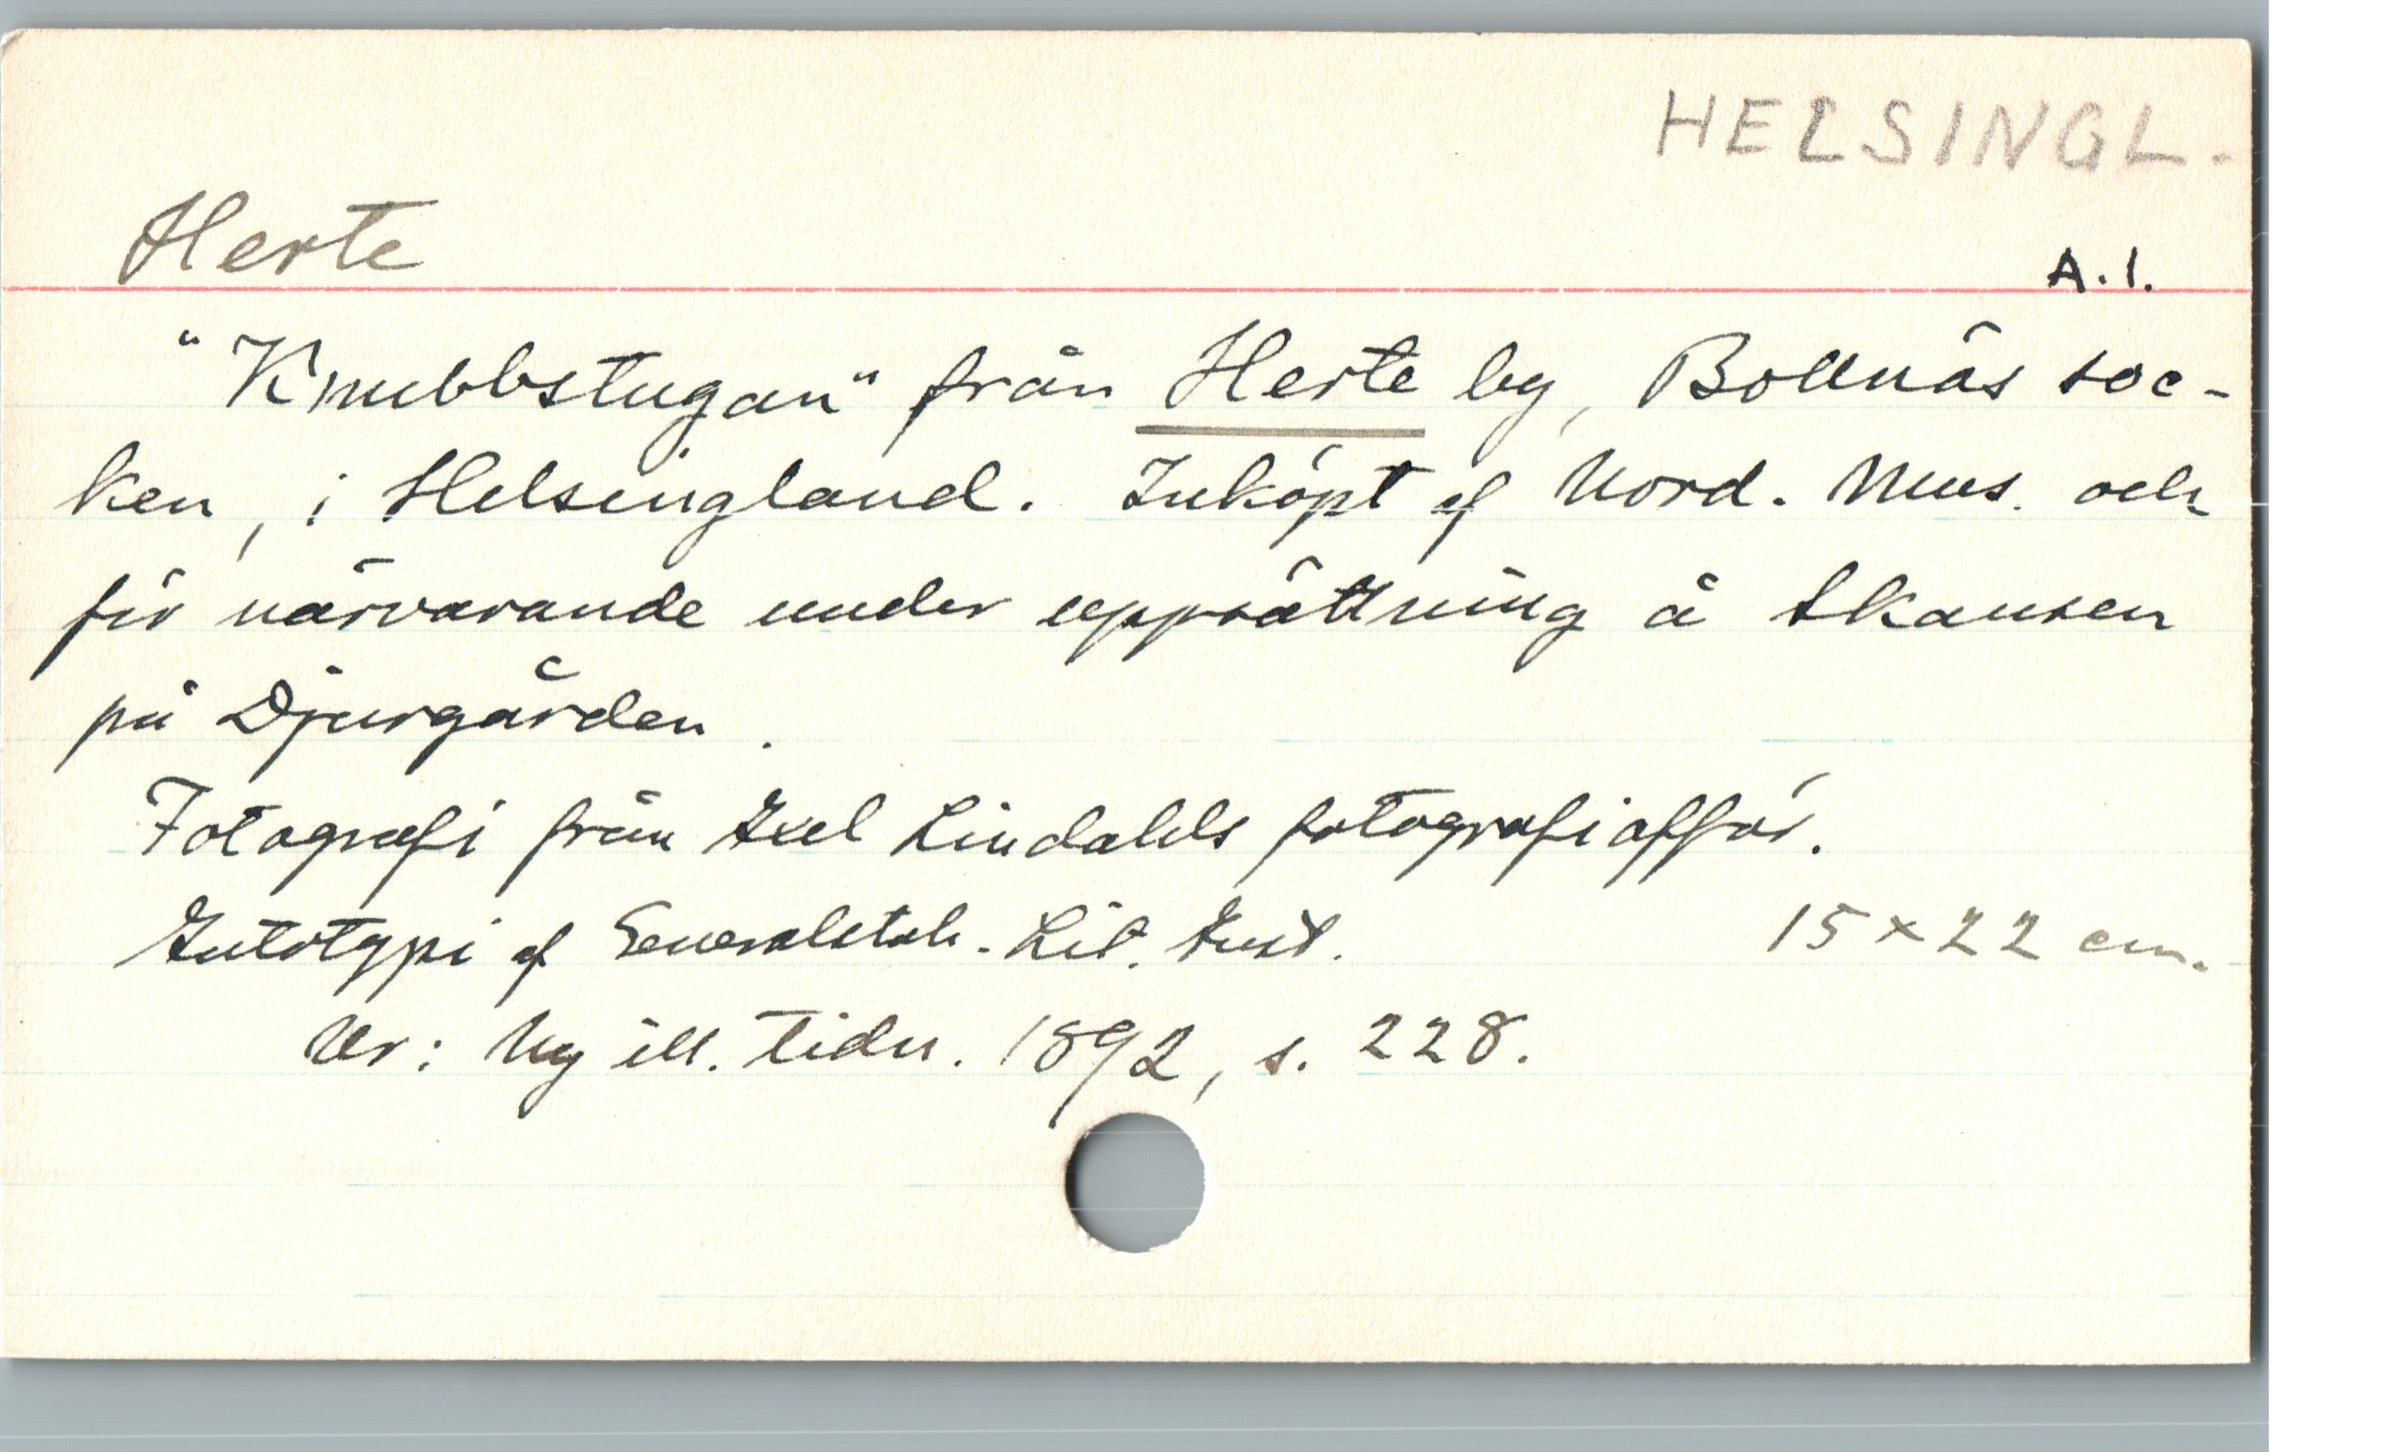 HELSINGL.
Herte
A.1.
"Knubbstugan" från Herte by, Bollnäs soc-
ken, i Helsingland. Inköpt af Nord. Mus. och
för närvarande under uppsättning å Skansen
på Djurgården.
Fotografi från Axel Lindahls fotografiaffär.
Autotypi af Generalstab. Lit. Anst. 15 x 22 cm.
Ur: Ny ill. tidn. 1892, s. 228.